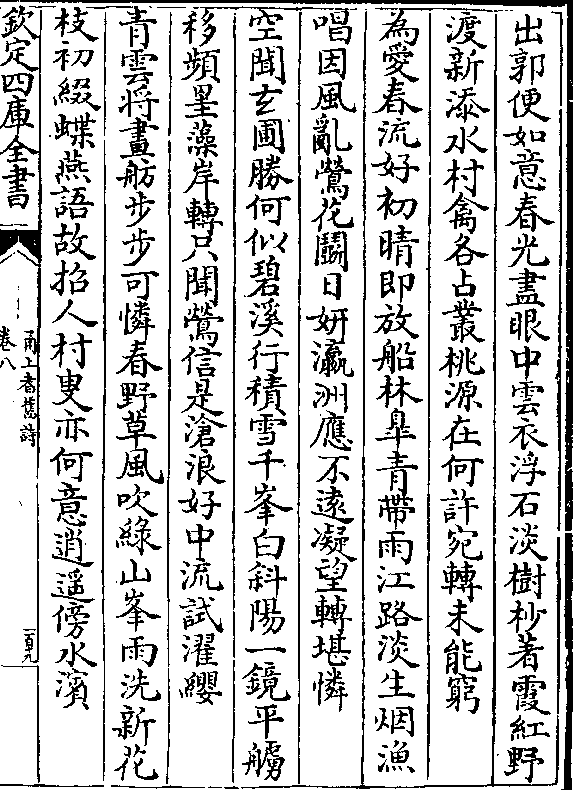 出郭便如意春光盡眼中雲衣浮石淡樹杪著霞紅野
渡新添水村禽各占叢桃源在何許宛轉未能窮
為愛春流好初晴即放船林臯青帶雨江路淡生烟漁
唱因風亂鶯花鬭日妍瀛洲應不遠凝望轉堪憐
空聞玄圃勝何似碧溪行積雪千峯白斜陽一鏡平艣
移頻墨藻岸轉只聞鶯信是滄浪好中流試濯纓
青雲将畫舫步步可憐春野草風吹綠山峯雨洗新花
枝初綴蝶燕語故招人村叟亦何意逍遥傍水濱
欽定四庫全書
甬上耆舊詩
卷八